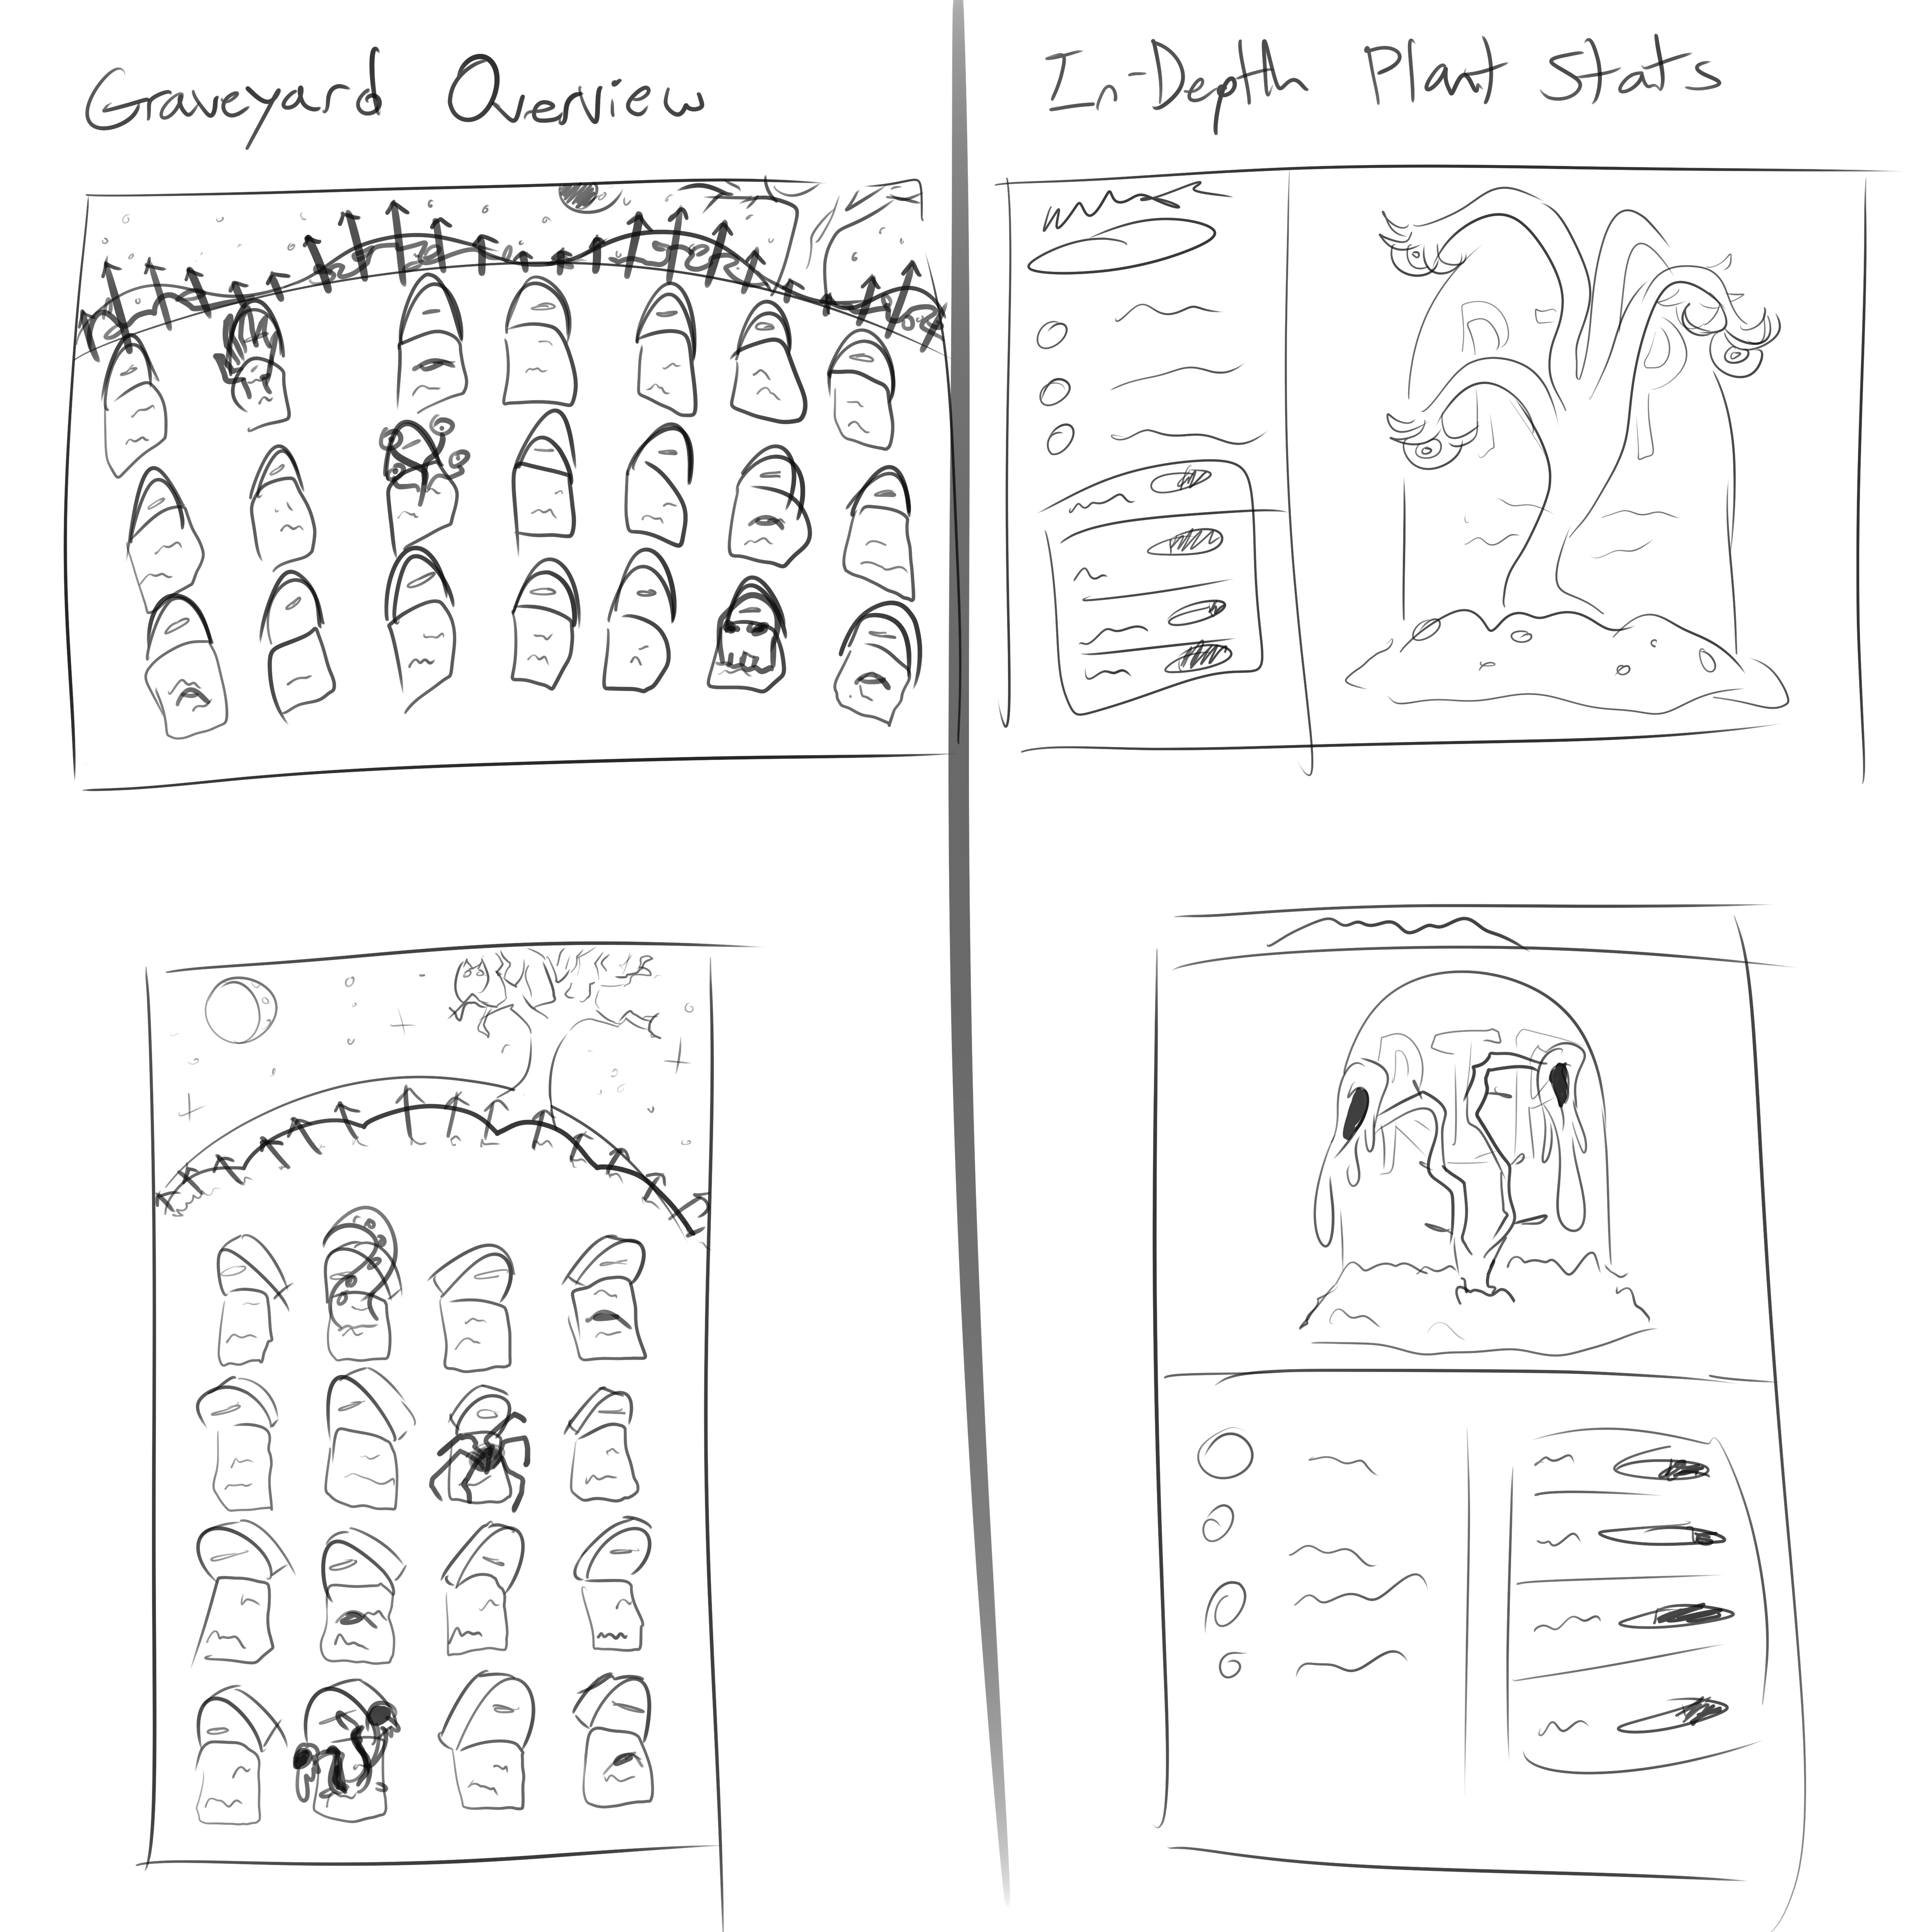 Graveyard Overview
In-Depth Plant Stats